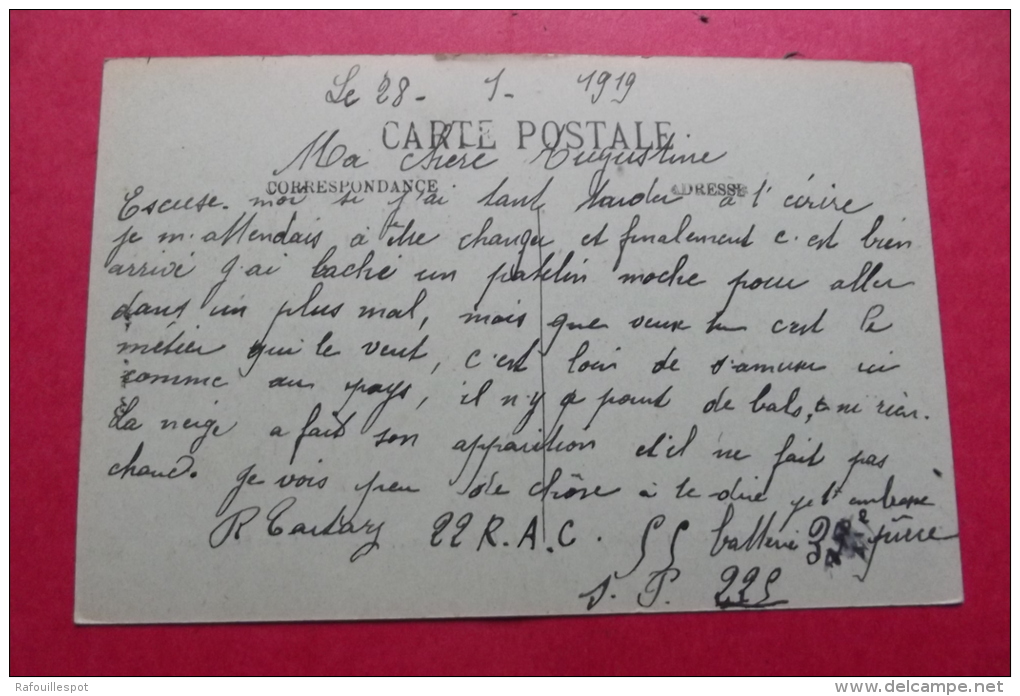 Le 28 - 1 - 1919
CARTE POSTALE
Ma chere Augustine
CORRESPONDANCE ADRESSE
Escuse-moi si j'ai tant tarder à t'écrire
je m'attendais à être changer et finalement c'est bien
arrivé j'ai laché un patelin moche pour aller
dans un plus mal, mais que veux tu c'est le
métier qui le veut, c'est loin de s'amuser ici
comme au pays, il n'y a point de bals, ni rien.
La neige a fait son apparition et il ne fait pas
chaud. Je vois peu de chôse à te dire je t'embrasse
R Tartary 22 R.A.C. 55 batterie
S. P. 225
Rafouillespot
www.delcampe.net